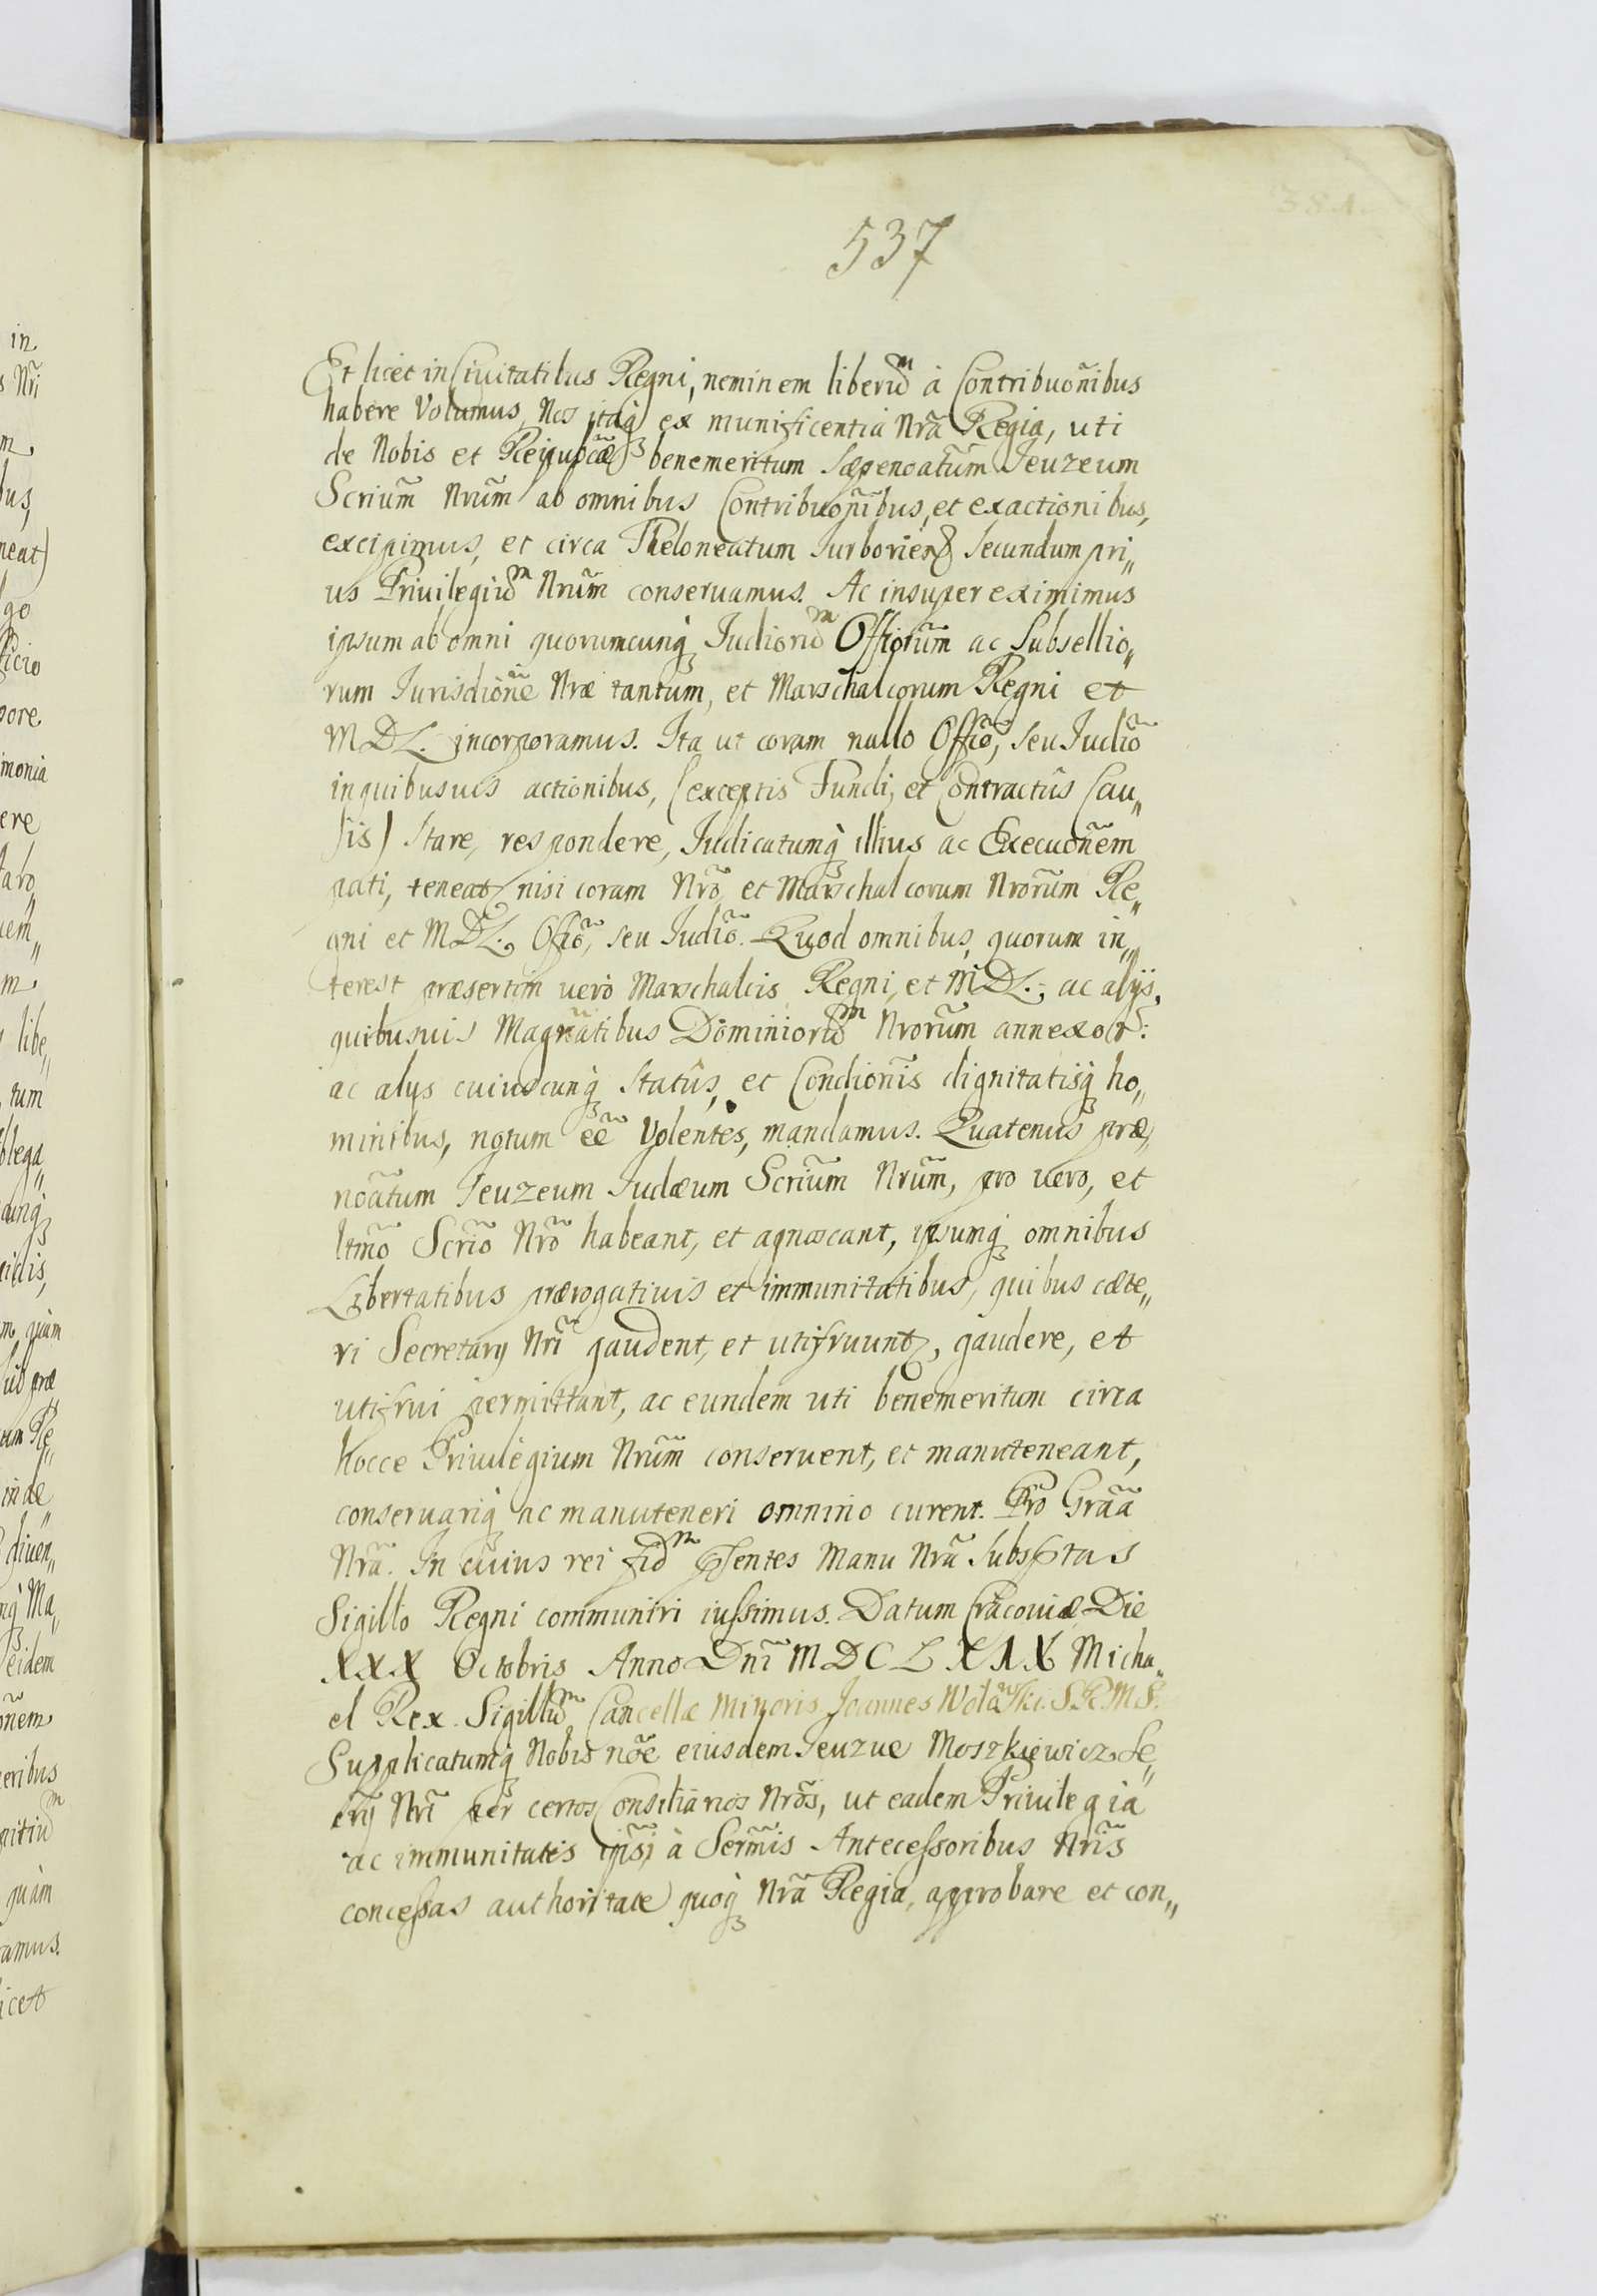 537
Et licet in Civitatibus Regni, neminem liberũm à Contribuoñibus
habere Volumus, Nos itaq̃ ex munificentia Nrã Regia, uti
de Nobis et Reipubcæ benemeritum Sæpenoatũm Jeuzeum
Scriũm Nrũm ab omnibus Contribuoñibus, et exactionibus,
excipimus, et circa Theloneatum Jurborien̄ Secundum pri„
us Privilegiũm Nrũm conseruamus. Ac insuper eximimus
ipsum ab omni quorumcunq̃ Judioriũm Offiorũm ac Subsellio„
rum Jurisdioñe Nræ tantum, et Marschalcorum Regni et
MDL. incorporamus. Ita ut coram nullo Officõ, seu Judiõ
in quibusuis actionibus, (exceptis Fundi, et Contractûs Cau„
sis) Stare, respondere, Judicatumq̃ illius ac Execuoñem
pati, teneat nisi coram Nrõ, et Marschalcorum Nrorũm Re„
gni et MDL. Offiõ, seu Judiõ. Quod omnibus, quorum in„
terest præsertim uerò Marschalcis Regni, et MDL., ac alijs,
quibusuis Magnatibus Dominioriũm Nrorũm annexor:
ac alys cuiuscunq̃ Statûs, et Condioñis dignitatisq̃ ho„
minibus, notum eẽ Volentes, mandamus. Quatenus præ„
noãtum Jeuzeum Judæum Scriũm Nrũm, pro uero, et
ltmõ Scriõ Nrõ habeant, et agnoscant, ipsumq̃ omnibus
Libertatibus prærogatiuis et immunitatibus, quibus cæte„
ri Secretarij Nrĩ gaudent, et utifruunt, gaudere, et
utifrui permittant, ac eundem uti benemeritum circa
hocce Priuilegium Nrũm conseruent, et manuteneant,
conseruariq̃ ac manuteneri omnino curent. Pro Graã
Nrã. In cuius rei fidm pSentes Manu Nrã Subsptas
Sigillo Regni communiri iussimus. Datum Cracouiæ Die
XXX Octobris Anno Dnĩ MDCLXIX Micha„
el Rex. Sigillũm Cancellæ Minoris Joannes Wolãski. S.R.M.S.
Supplicatumq̃ Nobis noẽ eiusdem Jeuzue Moszkiewicz Se„
crij Nrĩ per certos Consiliarios Nrõs, ut eadem Priuilegia
ac immunitates ipsi à Sermĩs Antecessoribus Nrĩs
concessas authoritate quoq̃ Nrã Regia, approbare et con„